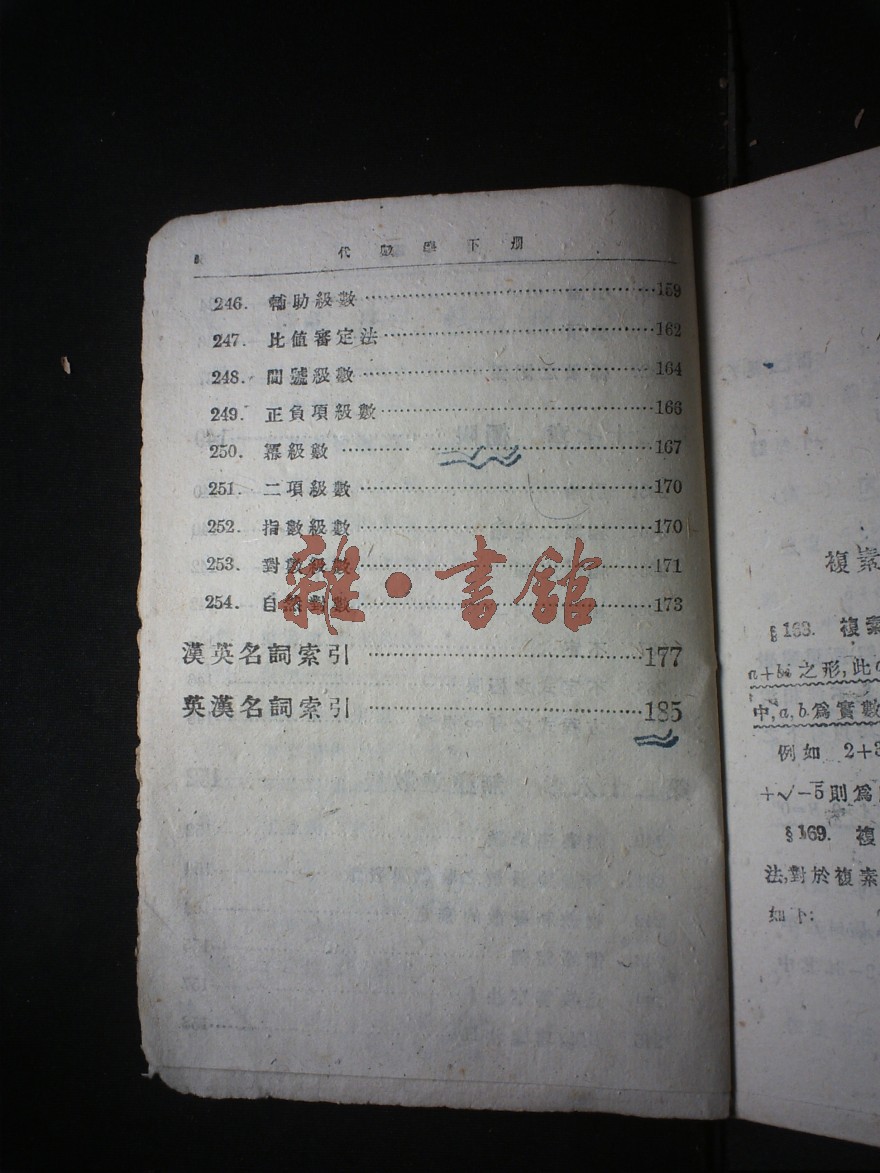 代數學下册
246. 輔助級數……159
247. 比値審定法……162
248. 間號級數……164
249. 正負項級數……166
250. 羃級數……167
251. 二項級數……170
252. 指數級數……170
253. 對數級數……171
254. 自然對數……173
漢英名詞索引……177
英漢名詞索引……185
雜·書館
複素
§168. 複素
a+bi 之形,此
中,a,b爲實數
例如 2+3
+√-5則爲
§169. 複
法,對於複素
如下: